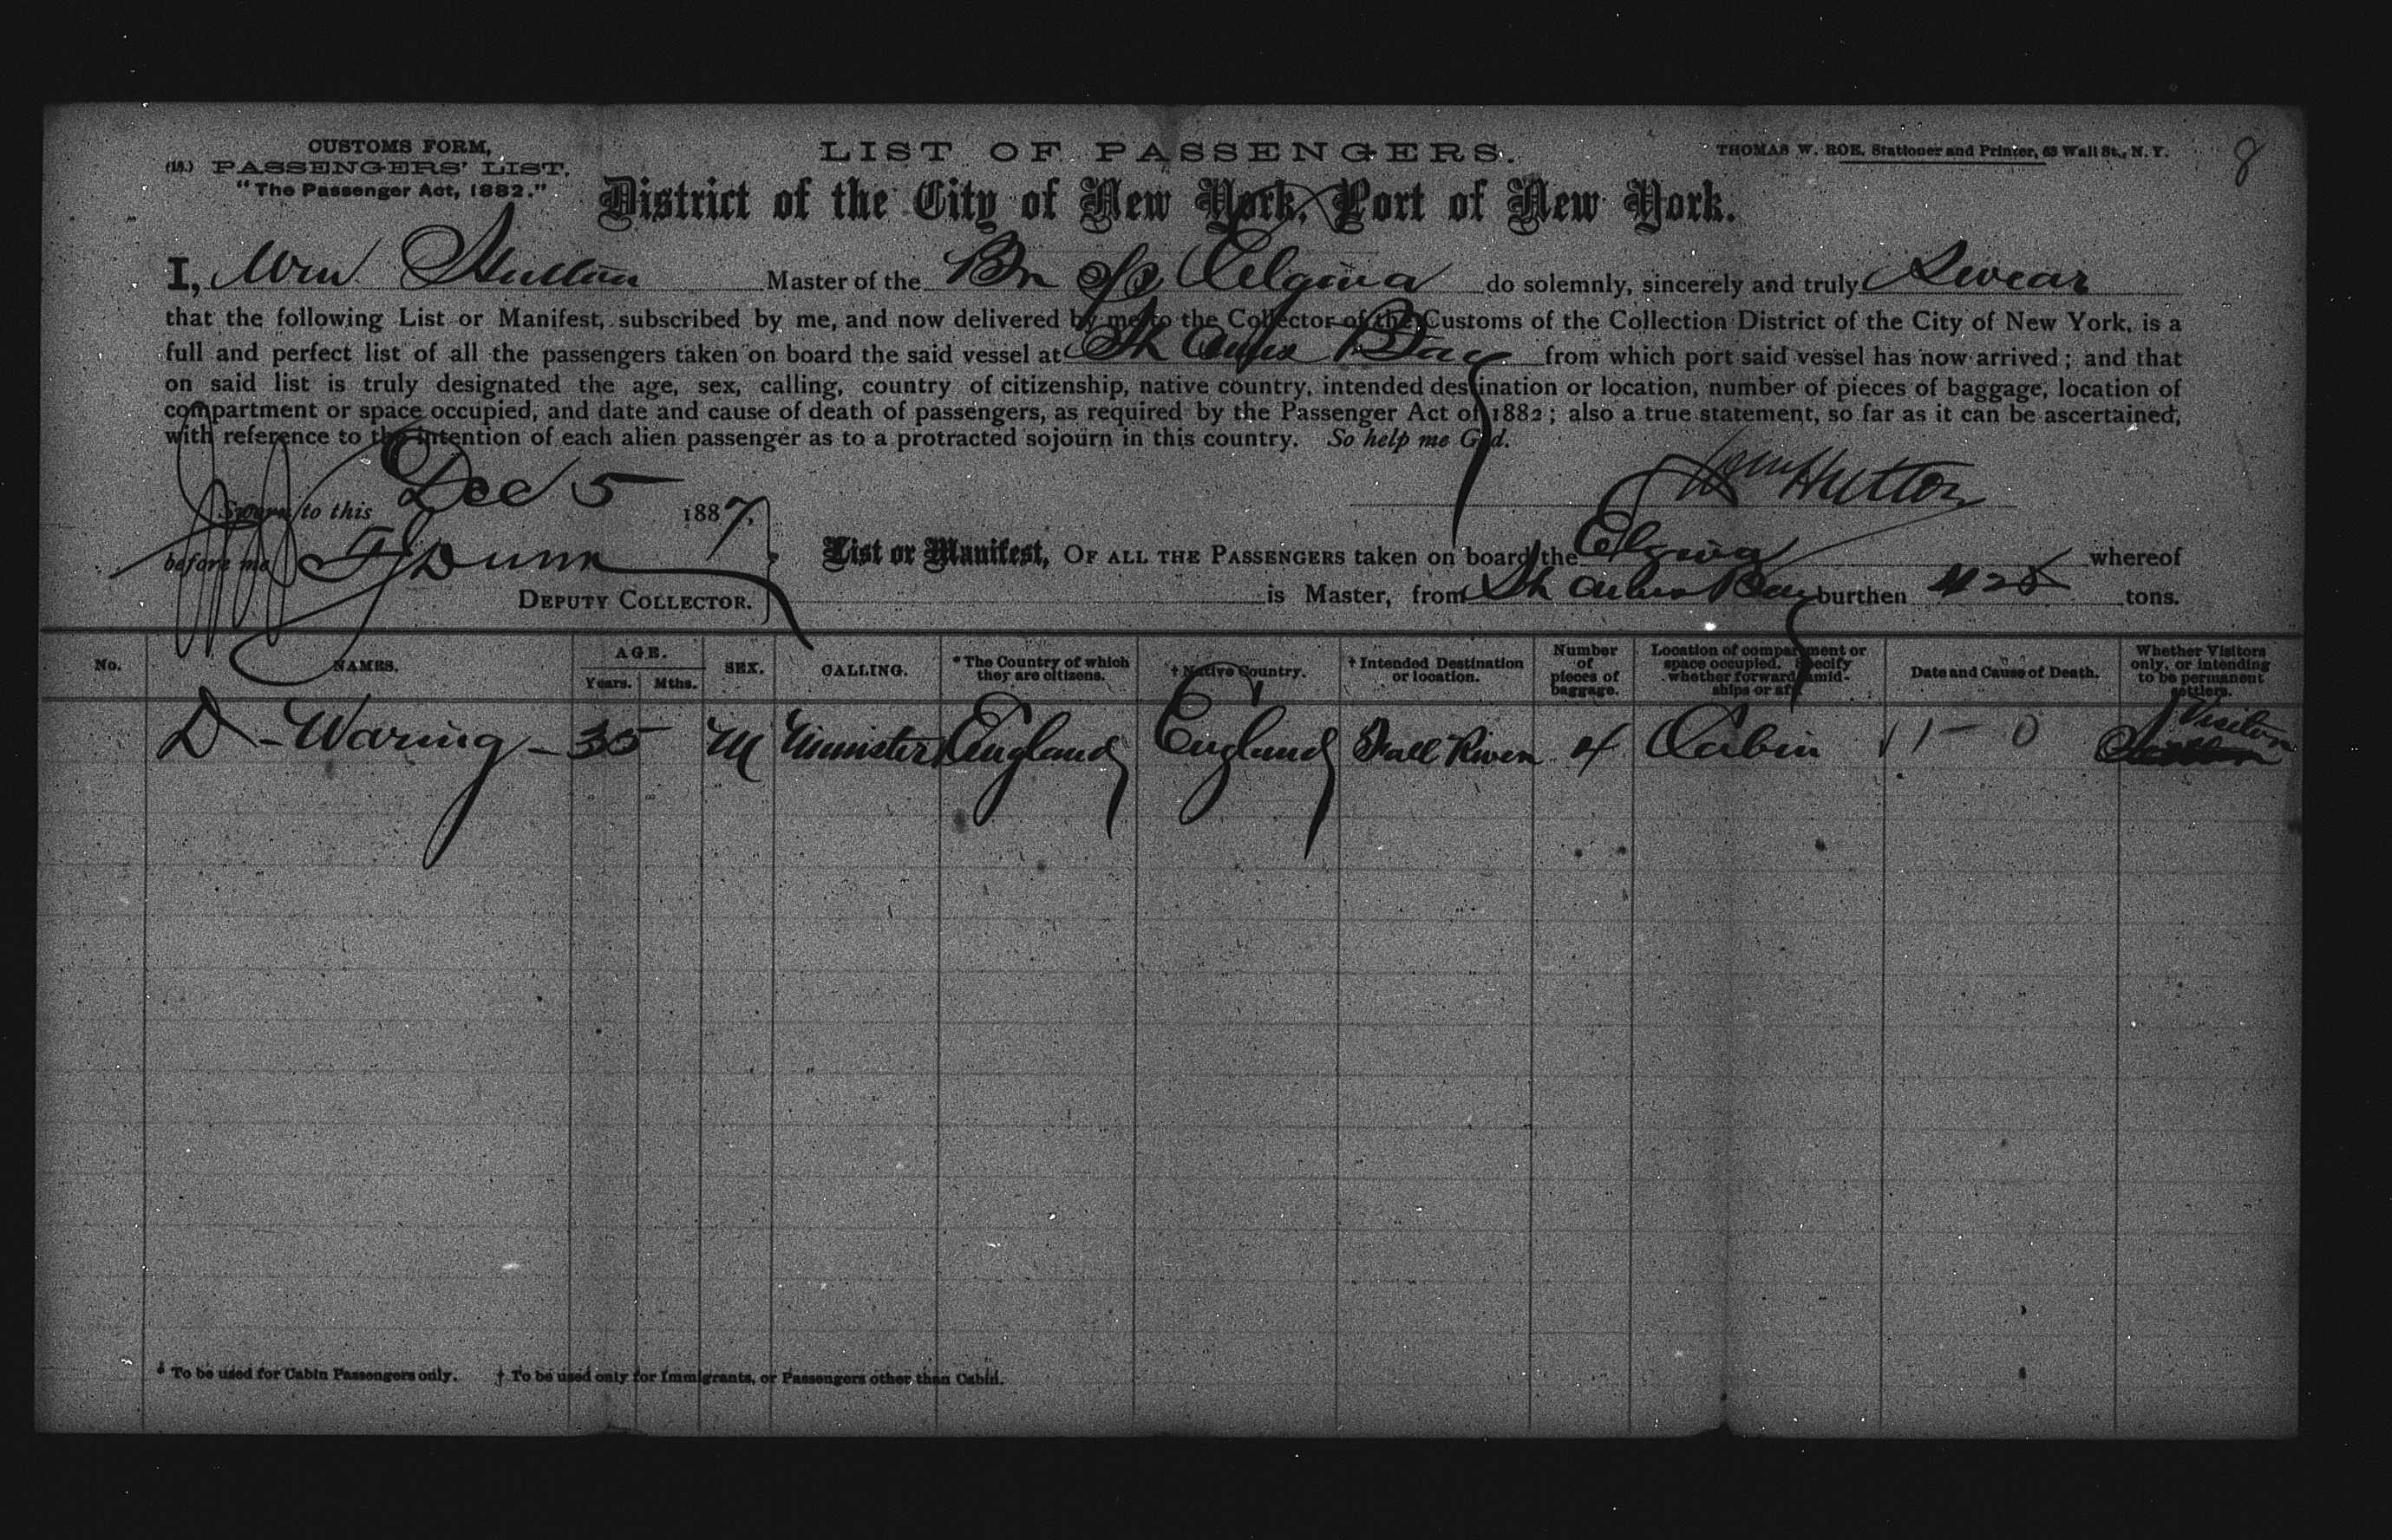 CUSTOMS FORM,
(18.) PASSENGERS' LIST.
"The Passenger Act, 1882."
LIST OF PASSENGERS.
THOMAS W. ROE, Stationer and Printer, 63 Wall St., N. Y.
8
District of the City of New York, Port of New York.
I, Wm Hutton Master of the Br SS Elgiva do solemnly, sincerely and truly Swear
that the following List or Manifest, subscribed by me, and now delivered by me to the Collector of the Customs of the Collection District of the City of New York, is a
full and perfect list of all the passengers taken on board the said vessel at St Anns Bay from which port said vessel has now arrived; and that
on said list is truly designated the age, sex, calling, country of citizenship, native country, intended destination or location, number of pieces of baggage, location of
compartment or space occupied, and date and cause of death of passengers, as required by the Passenger Act of 1882; also a true statement, so far as it can be ascertained,
with reference to the intention of each alien passenger as to a protracted sojourn in this country. So help me God.
Wm Hutton
Sworn to this Dec 5 1887,
before me F Dunn
DEPUTY COLLECTOR.
List or Manifest, OF ALL THE PASSENGERS taken on board the Elgiva whereof
is Master, from St Anns Bay burthen 425 tons.
No. NAMES. AGE. Years. Mths. SEX. CALLING. *The Country of which they are citizens. †Native Country. †Intended Destination or location. Number of pieces of baggage. Location of compartment or space occupied. Specify whether forward, amidships or aft. Date and Cause of Death. Whether Visitors only, or intending to be permanent settlers.
D - Waring - 35 M Minister England England Fall River 4 Cabin 1 - 0 Visitor
* To be used for Cabin Passengers only. † To be used only for Immigrants, or Passengers other than Cabin.